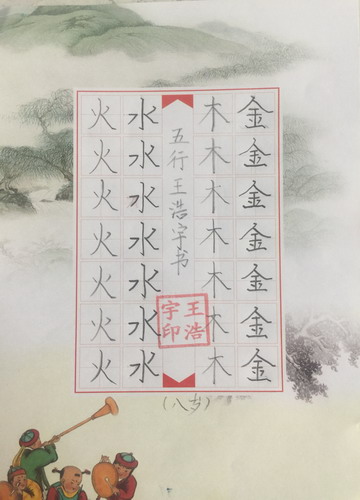 金金金金金金金
木木木木木木木
五行王浩宇书
王浩宇印
水水水水水水水
火火火火火火火
(八岁)